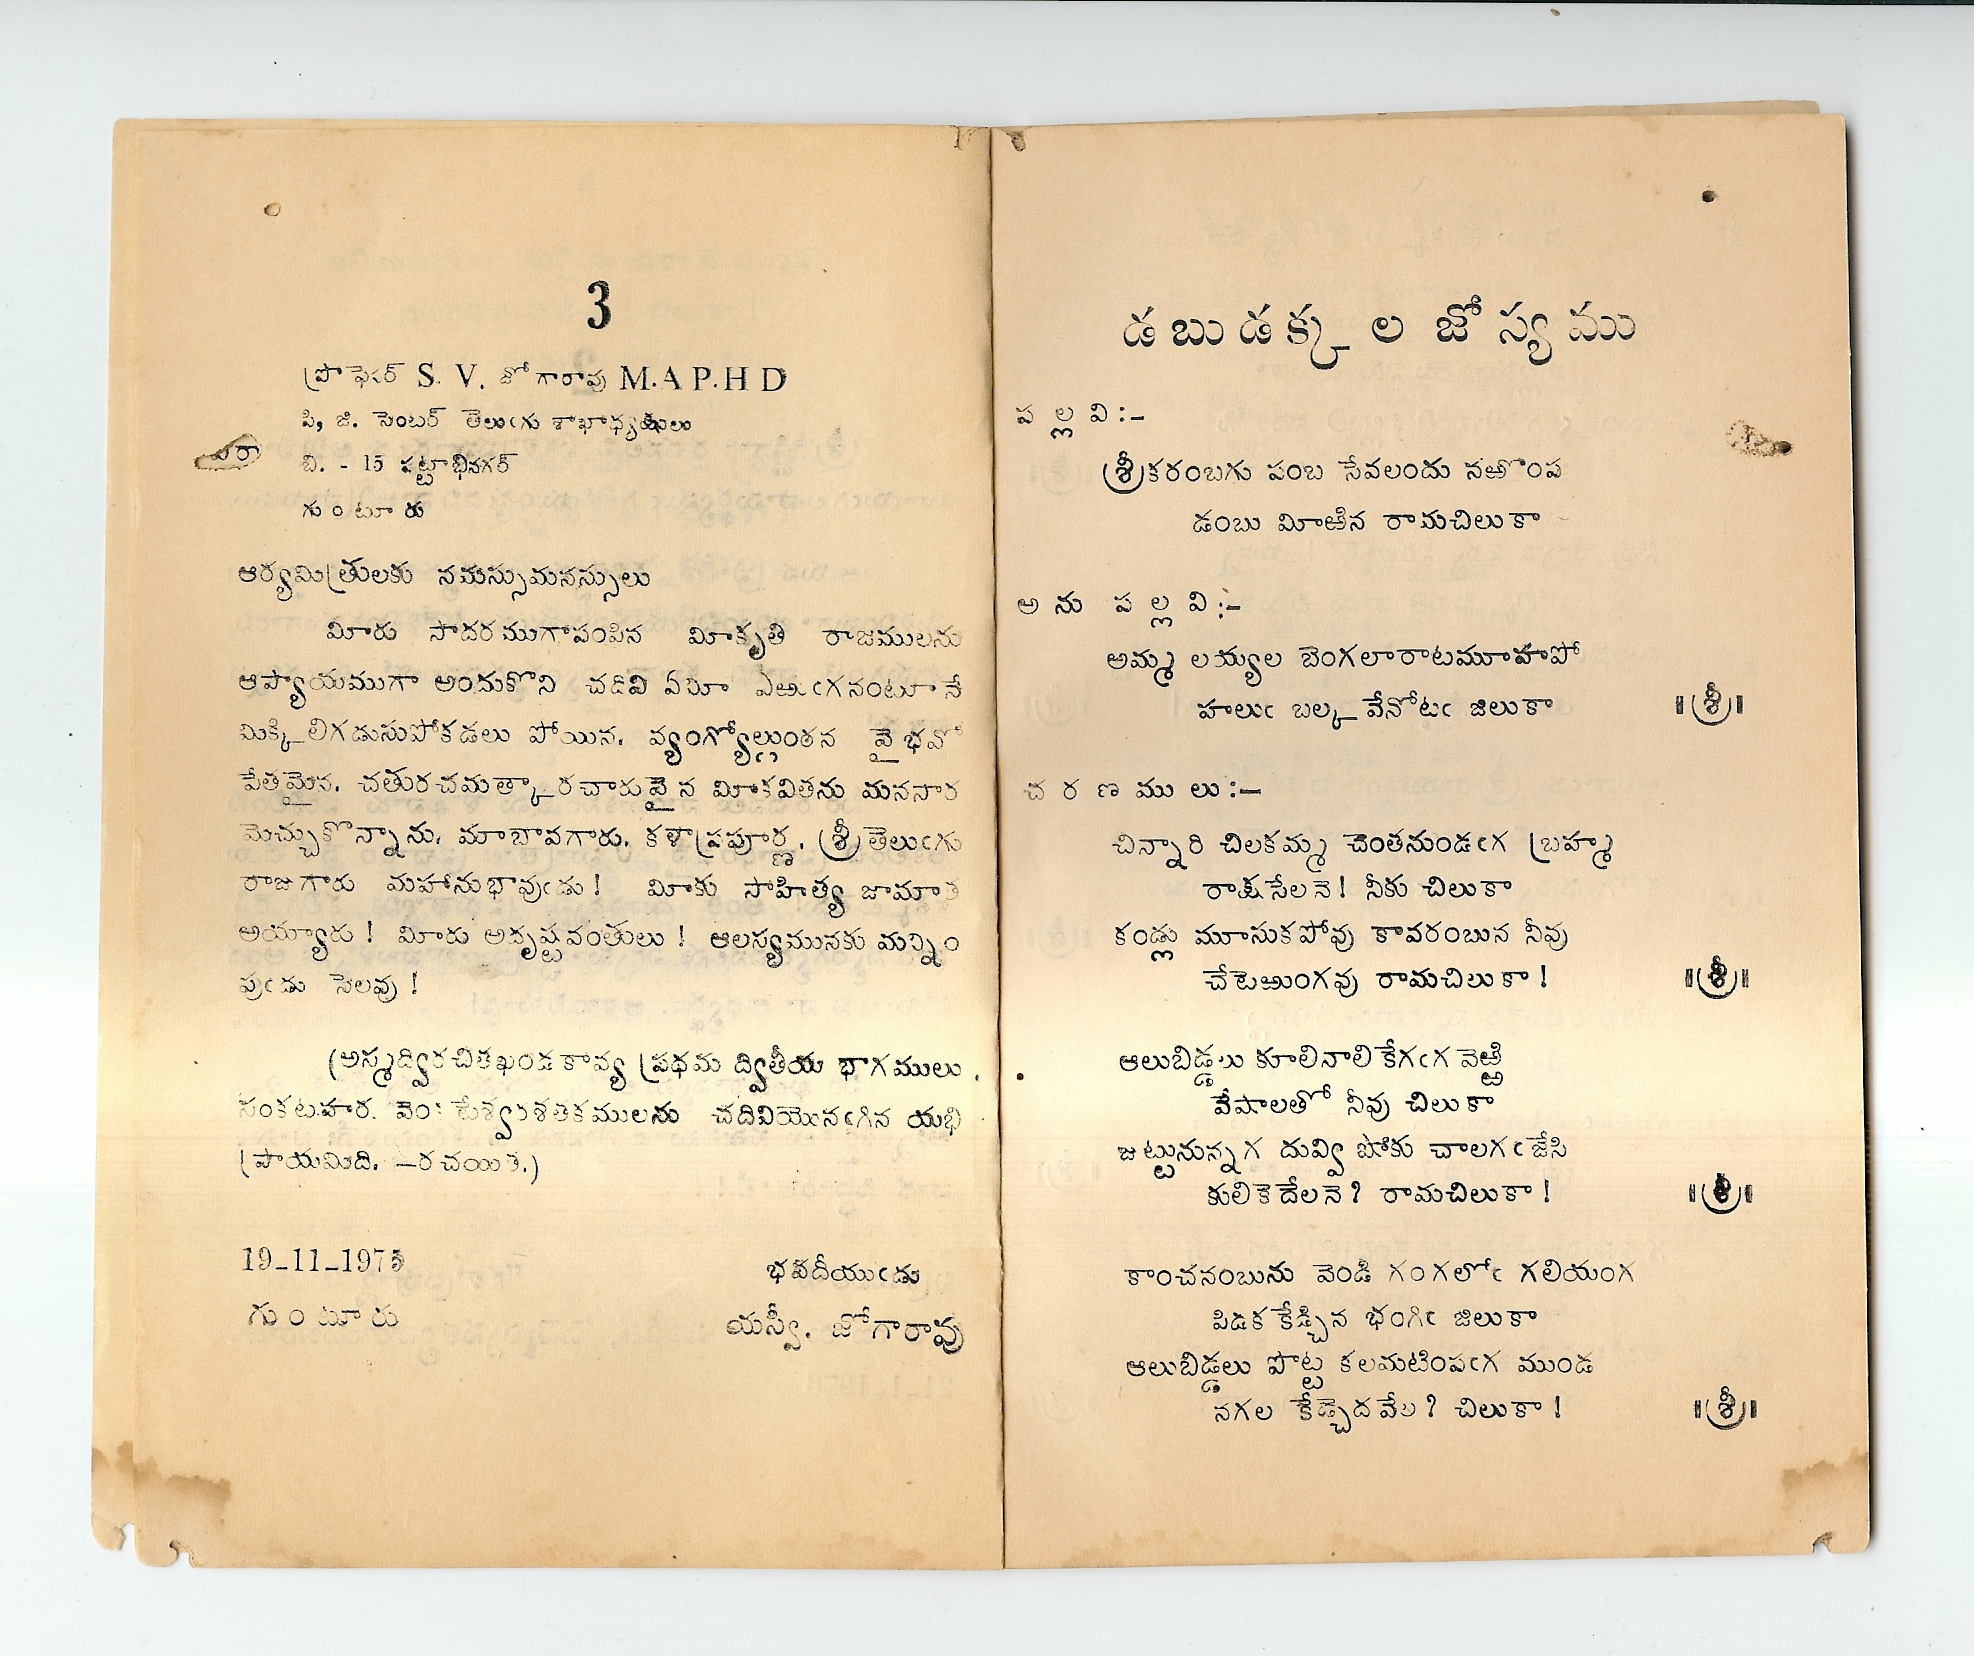 3
ప్రొఫెసర్ S. V. జోగారావు M.A P.H D
పి, జి. సెంటర్ తెలుఁగు శాఖాధ్యక్షులు
బి. - 15 పట్టాభినగర్
గుంటూరు
ఆర్యమిత్రులకు నమస్సుమనస్సులు
మీరు సాదరముగాపంపిన మీకృతి రాజములను
ఆప్యాయముగా అందుకొని చదివి ఏమీ ఎఱుఁగనంటూనే
మిక్కిలిగడుసుపోకడలు పోయిన. వ్యంగ్యోల్లుంఠన వైభవో
పేతమైన. చతురచమత్కారచారువైన మీకవితను మనసార
మెచ్చుకొన్నాను. మాబావగారు. కళాప్రపూర్ణ. శ్రీతెలుఁగు
రాజుగారు మహానుభావుఁడు! మీకు సాహిత్య జామాత
అయ్యారు! మీరు అదృష్టవంతులు! ఆలస్యమునకు మన్నిం
పుఁడు సెలవు!
(అస్మద్విరచితఖండకావ్య ప్రథమ ద్వితీయ భాగములు.
సంకటహర. వెంకటేశ్వరశతకములను చదివియొనఁగిన యభి
ప్రాయమిది. —రచయిత.)
19-11-1975
గుంటూరు
భవదీయుఁడు
యస్వీ. జోగారావు
డబుడక్కల జోస్యము
పల్లవి:-
శ్రీకరంబగు పంబ సేవలందు నఱొంప
డంబు మీఱిన రామచిలుకా
అను పల్లవి:-
అమ్మ లయ్యల బెంగలారాటమూహపో
హలుఁ బల్క వేనోటఁ జిలుకా ॥శ్రీ॥
చరణములు:—
చిన్నారి చిలకమ్మ చెంతనుండఁగ బ్రహ్మ
రాక్షసేలనె! నీకు చిలుకా
కండ్లు మూసుకపోవు కావరంబున నీవు
చేటెఱుంగవు రామచిలుకా! ॥శ్రీ॥
ఆలుబిడ్డలు కూలినాలికేగఁగ వెఱ్ఱి
వేషాలతో నీవు చిలుకా
జుట్టునున్నగ దువ్వి షోకు చాలగఁజేసి
కులికెదేలనె? రామచిలుకా! ॥శ్రీ॥
కాంచనంబును వెండి గంగలోఁ గలియంగ
పిడక కేడ్చిన భంగిఁ జిలుకా
ఆలుబిడ్డలు పొట్ట కలమటింపఁగ ముండ
నగల కేడ్చెదవేల? చిలుకా! ॥శ్రీ॥